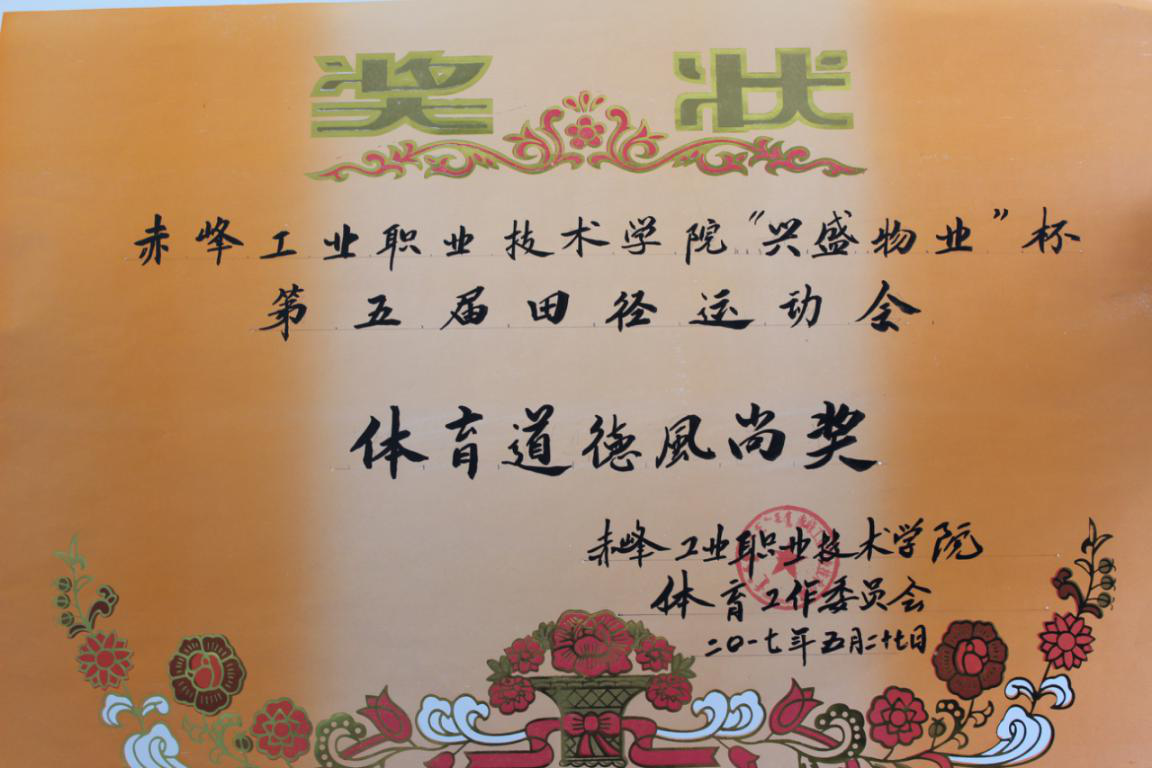 奖状
赤峰工业职业技术学院“兴盛物业”杯
第五届田径运动会
体育道德風尚奖
赤峰工业职业技术学院
体育工作委员会
二0一七年五月二十七日